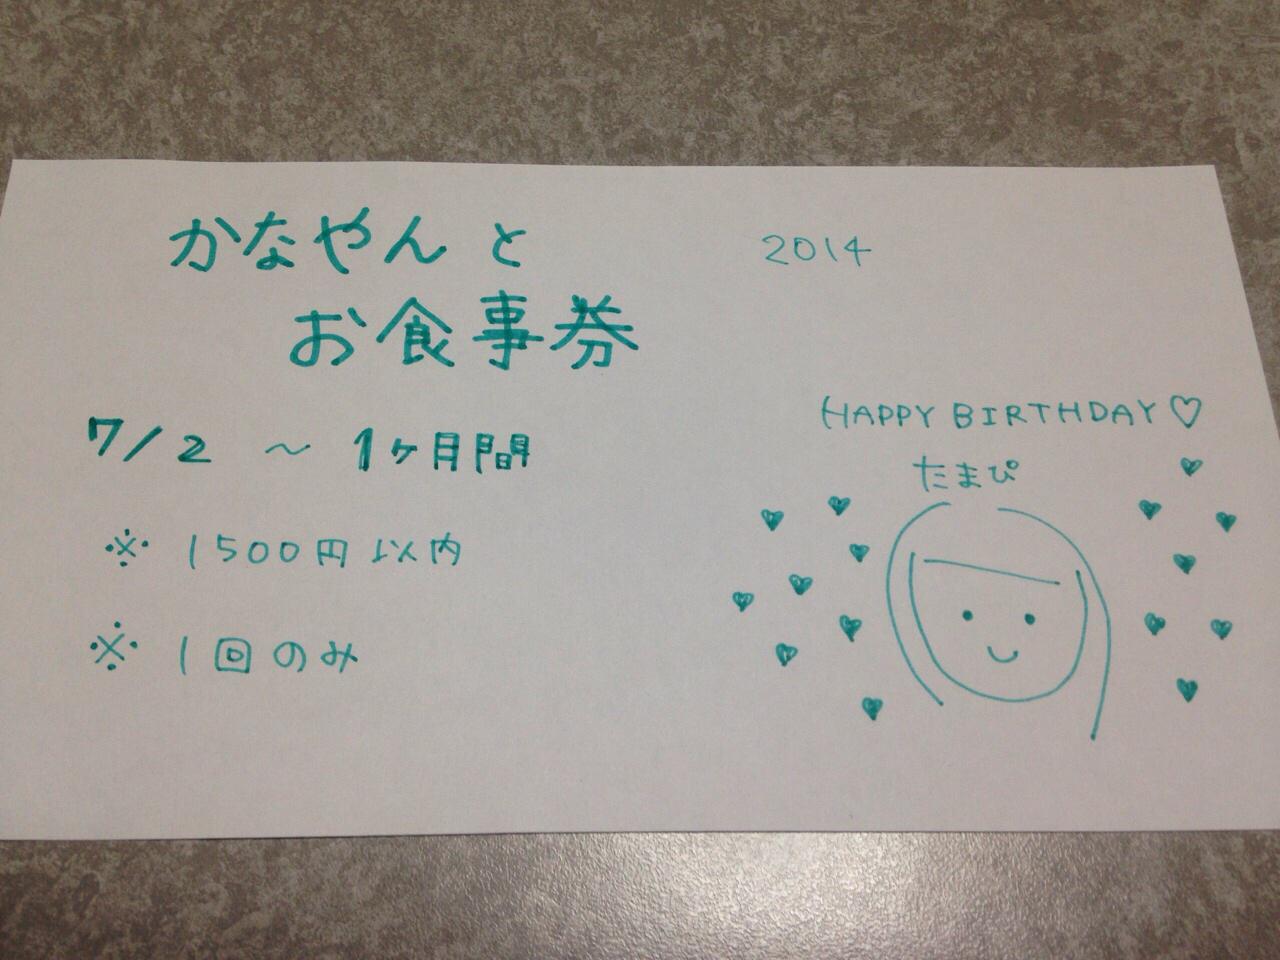 かなやんと
お食事券
7/2 ～ 1ヶ月間
※ 1500円以内
※ 1回のみ
2014
HAPPY BIRTHDAY♡
たまぴ